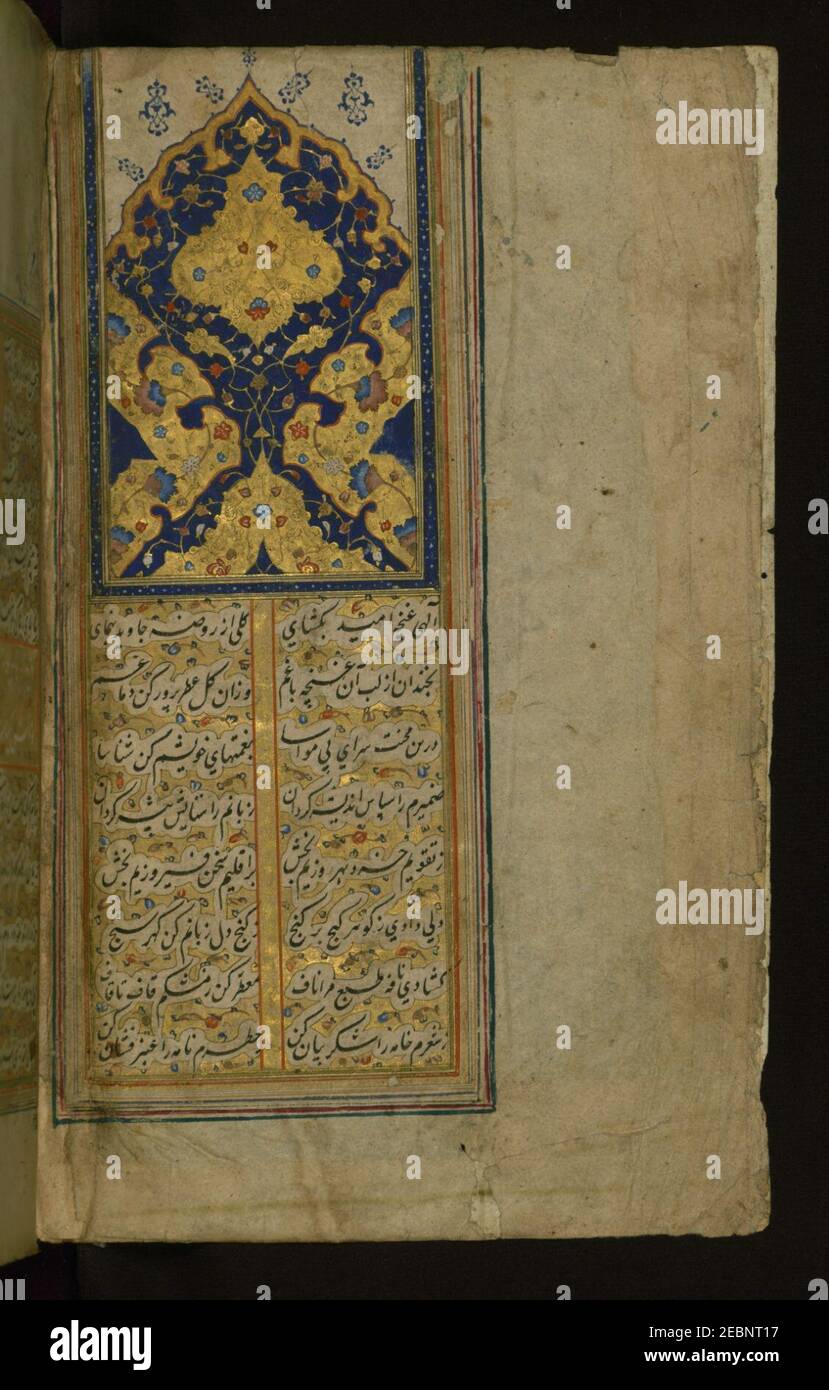 الهی غنچه امید بکشای کلی از روضه جاوید بنمای
بخندان از لب آن غنچه باغم وزان کل عطر پرور کن دماغم
درین محنت سرای بی مواسا بنعمتهای خویشم کن شناسا
ضمیرم را سپاس اندیشه کردان زبانم را ستایش پیشه کردان
ز تقویم خرد بهروزیم بخش بر اقلیم سخن فیروزیم بخش
دلی دادی ز کوهر کنج بر کنج ز کنج دل زبانم کن کهر سنج
کشادی نافه طبع مرا ناف معطر کن ز مشکم قاف تا قاف
ز شعرم خامه را شکر زبان کن ز عطرم نامه را عنبر فشان کن
alamy
Image ID: 2EBNT17
www.alamy.com